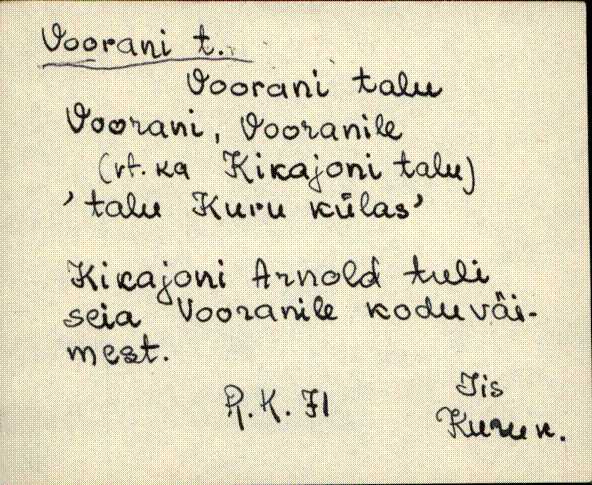 Voorani t.
Voorani talu
Voorani, Vooranile
(vt. ka Kikajoni talu)
'talu Kuru külas'
Kikajoni Arnold tuli
seia Vooranile koduväi-
mest.
R.K. 71
Iis
Kuru k.